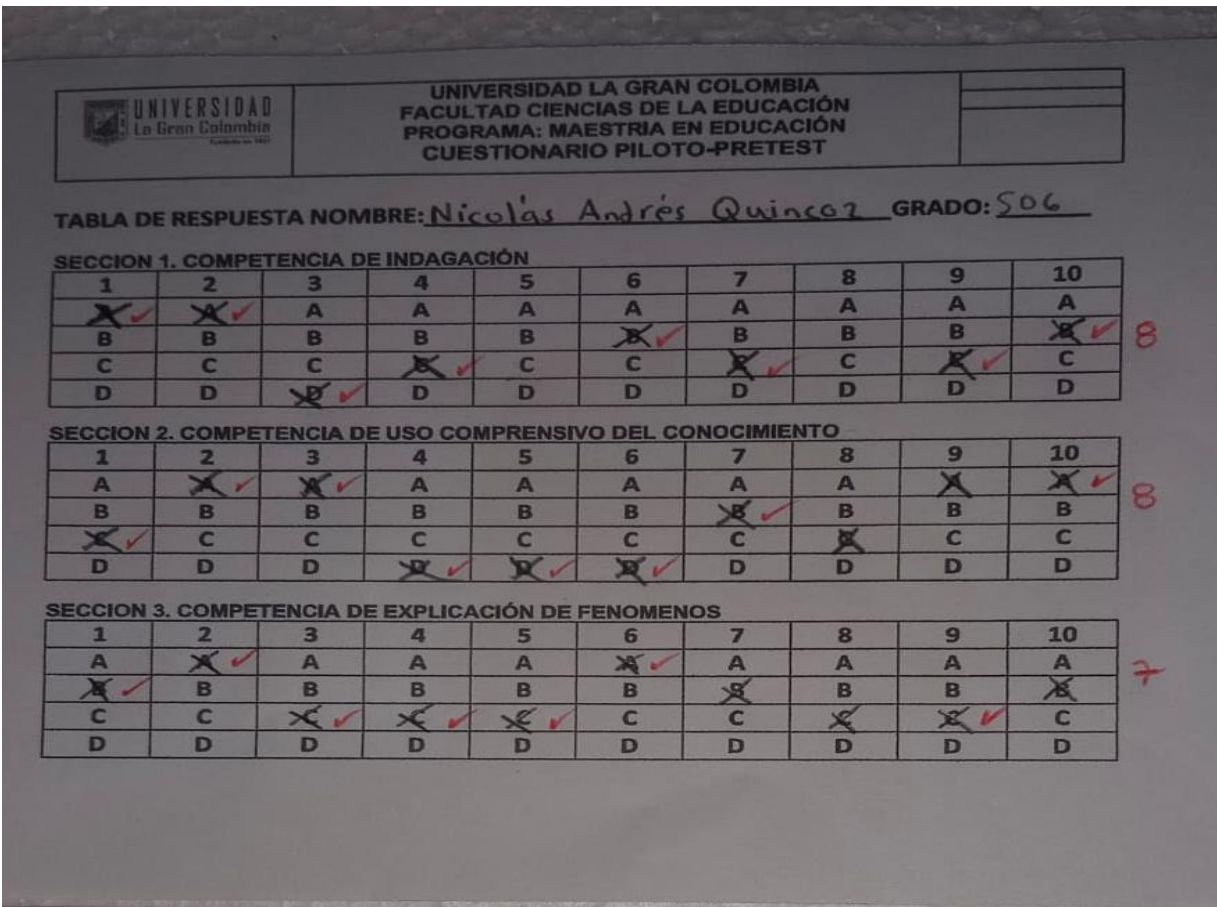 UNIVERSIDAD
La Gran Colombia
UNIVERSIDAD LA GRAN COLOMBIA
FACULTAD CIENCIAS DE LA EDUCACIÓN
PROGRAMA: MAESTRIA EN EDUCACIÓN
CUESTIONARIO PILOTO-PRETEST
TABLA DE RESPUESTA NOMBRE: Nicolás Andrés Quincoz GRADO: 506
SECCION 1. COMPETENCIA DE INDAGACIÓN
1 2 3 4 5 6 7 8 9 10
A A A A A A A A A A
B B B B B B B B B B 8
C C C C C C C C C C
D D D D D D D D D D
SECCION 2. COMPETENCIA DE USO COMPRENSIVO DEL CONOCIMIENTO
1 2 3 4 5 6 7 8 9 10
A A A A A A A A A A
B B B B B B B B B B 8
C C C C C C C C C C
D D D D D D D D D D
SECCION 3. COMPETENCIA DE EXPLICACIÓN DE FENOMENOS
1 2 3 4 5 6 7 8 9 10
A A A A A A A A A A 7
B B B B B B B B B B
C C C C C C C C C C
D D D D D D D D D D